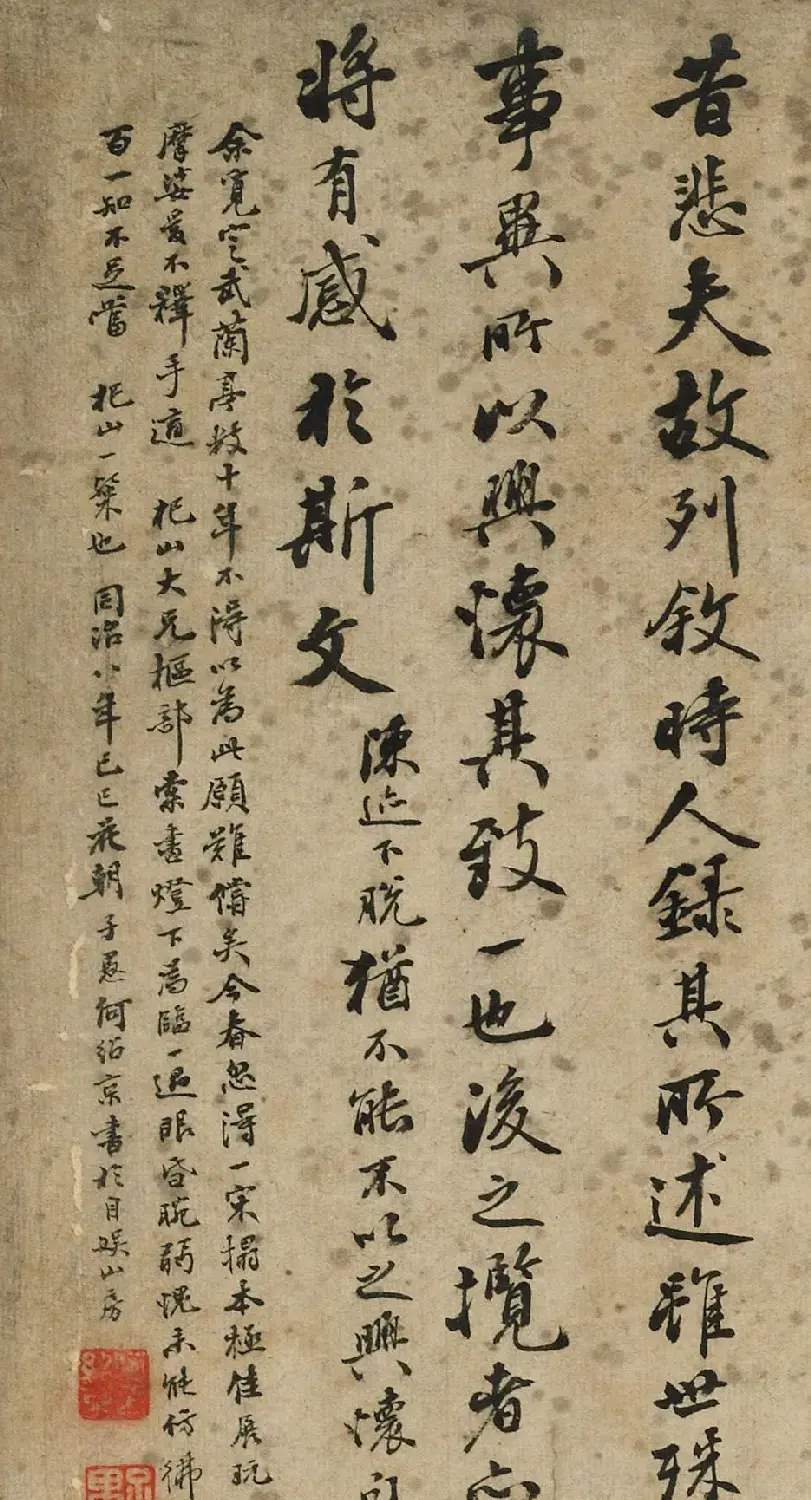 昔悲夫故列敘時人錄其所述雖世殊
事異所以興懷其致一也後之攬者亦
將有感於斯文 陳迹下脫猶不能不以之興懷句
余覓定武蘭亭數十年不得以為此願難償矣今春忽得一宋搨本極佳展玩
摩娑愛不釋手適 杞山大兄樞部索書燈下為臨一過眼昏腕弱愧未能仿彿
百一知不足當 杞山一粲也 同治八年己巳花朝子愚何紹京書於自娛山房